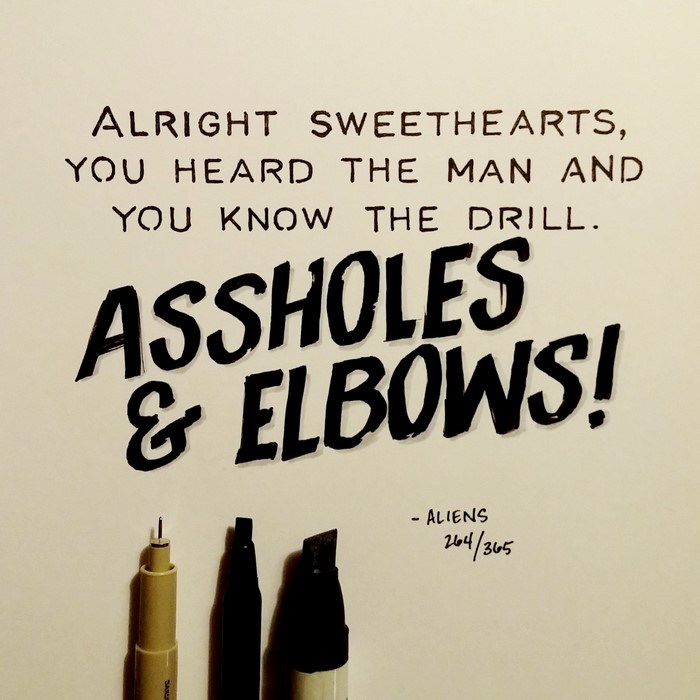 ALRIGHT SWEETHEARTS,
YOU HEARD THE MAN AND
YOU KNOW THE DRILL.
ASSHOLES
& ELBOWS!
- ALIENS
264/365